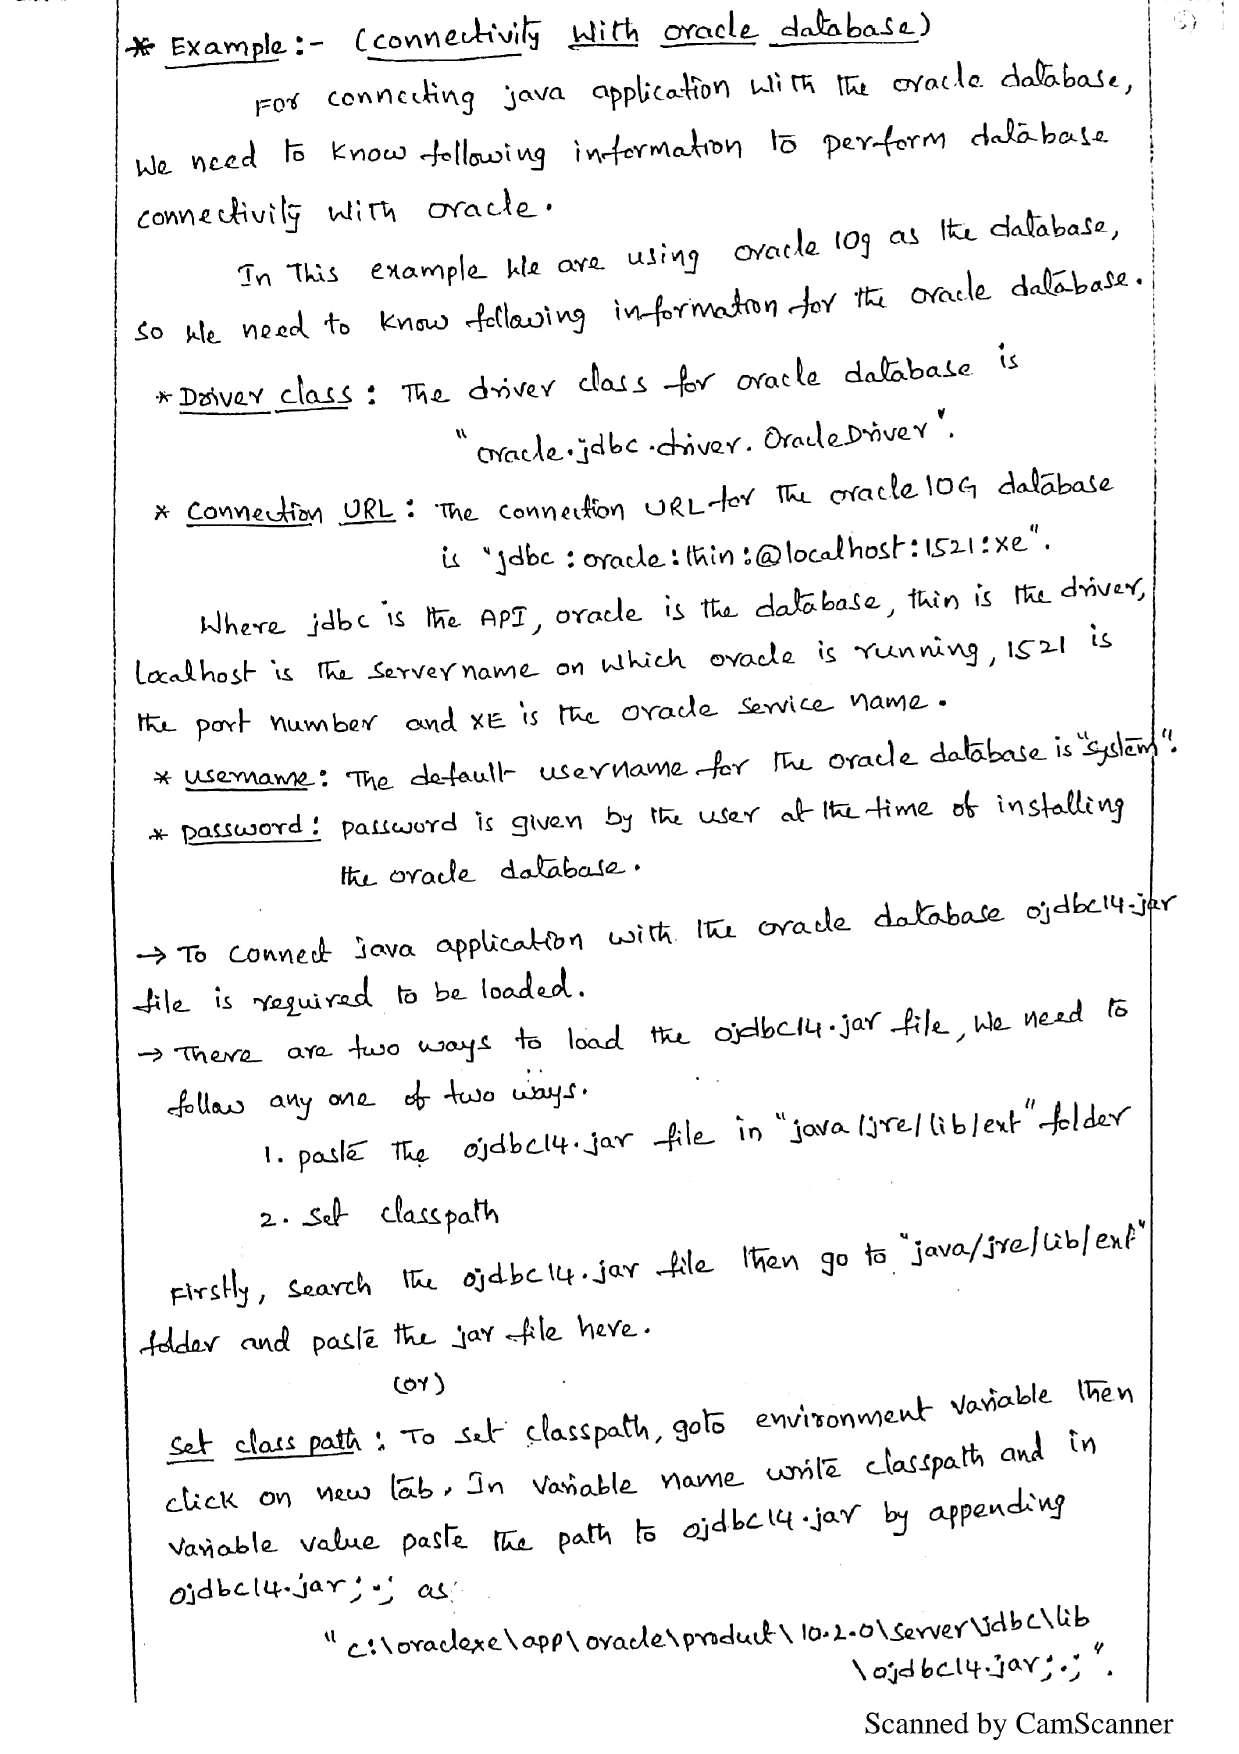 * Example :- (connectivity with oracle database)
For connecting java application with the oracle database,
we need to know following information to perform database
connectivity with oracle.
In this example we are using oracle 10g as the database,
so we need to know following information for the oracle database.
* Driver class : The driver class for oracle database is
"oracle.jdbc.driver.OracleDriver".
* connection URL : The connection URL for the oracle 10G database
is "jdbc:oracle:thin:@localhost:1521:xe".
Where jdbc is the API, oracle is the database, thin is the driver,
localhost is the server name on which oracle is running, 1521 is
the port number and XE is the oracle service name.
* username : The default username for the oracle database is "system".
* password : password is given by the user at the time of installing
the oracle database.
→ To connect java application with the oracle database ojdbc14.jar
file is required to be loaded.
→ There are two ways to load the ojdbc14.jar file, we need to
follow any one of two ways.
1. paste the ojdbc14.jar file in "java/jre/lib/ext" folder
2. set classpath
Firstly, search the ojdbc14.jar file then go to "java/jre/lib/ext"
folder and paste the jar file here.
(or)
set class path : To set classpath, goto environment variable then
click on new tab. In variable name write classpath and in
variable value paste the path to ojdbc14.jar by appending
ojdbc14.jar;.; as
"c:\oraclexe\app\oracle\product\10.2.0\server\jdbc\lib
\ojdbc14.jar;.;".
Scanned by CamScanner